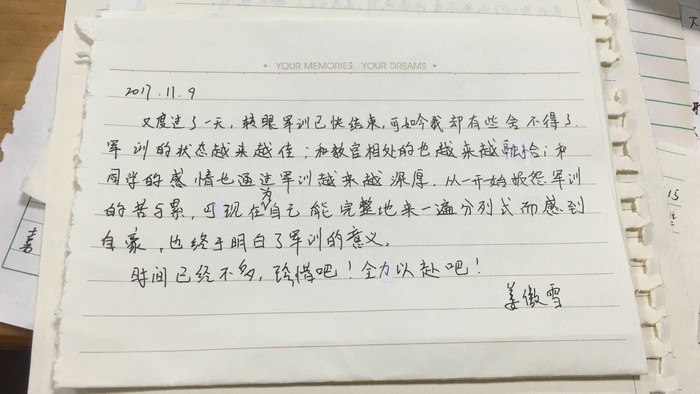 YOUR MEMORIES YOUR DREAMS
2017.11.9
又度过了一天，转眼军训已快结束，可如今我却有些舍不得了
军训的状态越来越佳；和教官相处的也越来越融洽；和
同学的感情也通过军训越来越深厚。从一开始埋怨军训
的苦与累，可现在为自己能完整地来一遍分列式而感到
自豪，也终于明白了军训的意义。
时间已经不多，珍惜吧！全力以赴吧！
姜傲雪
15